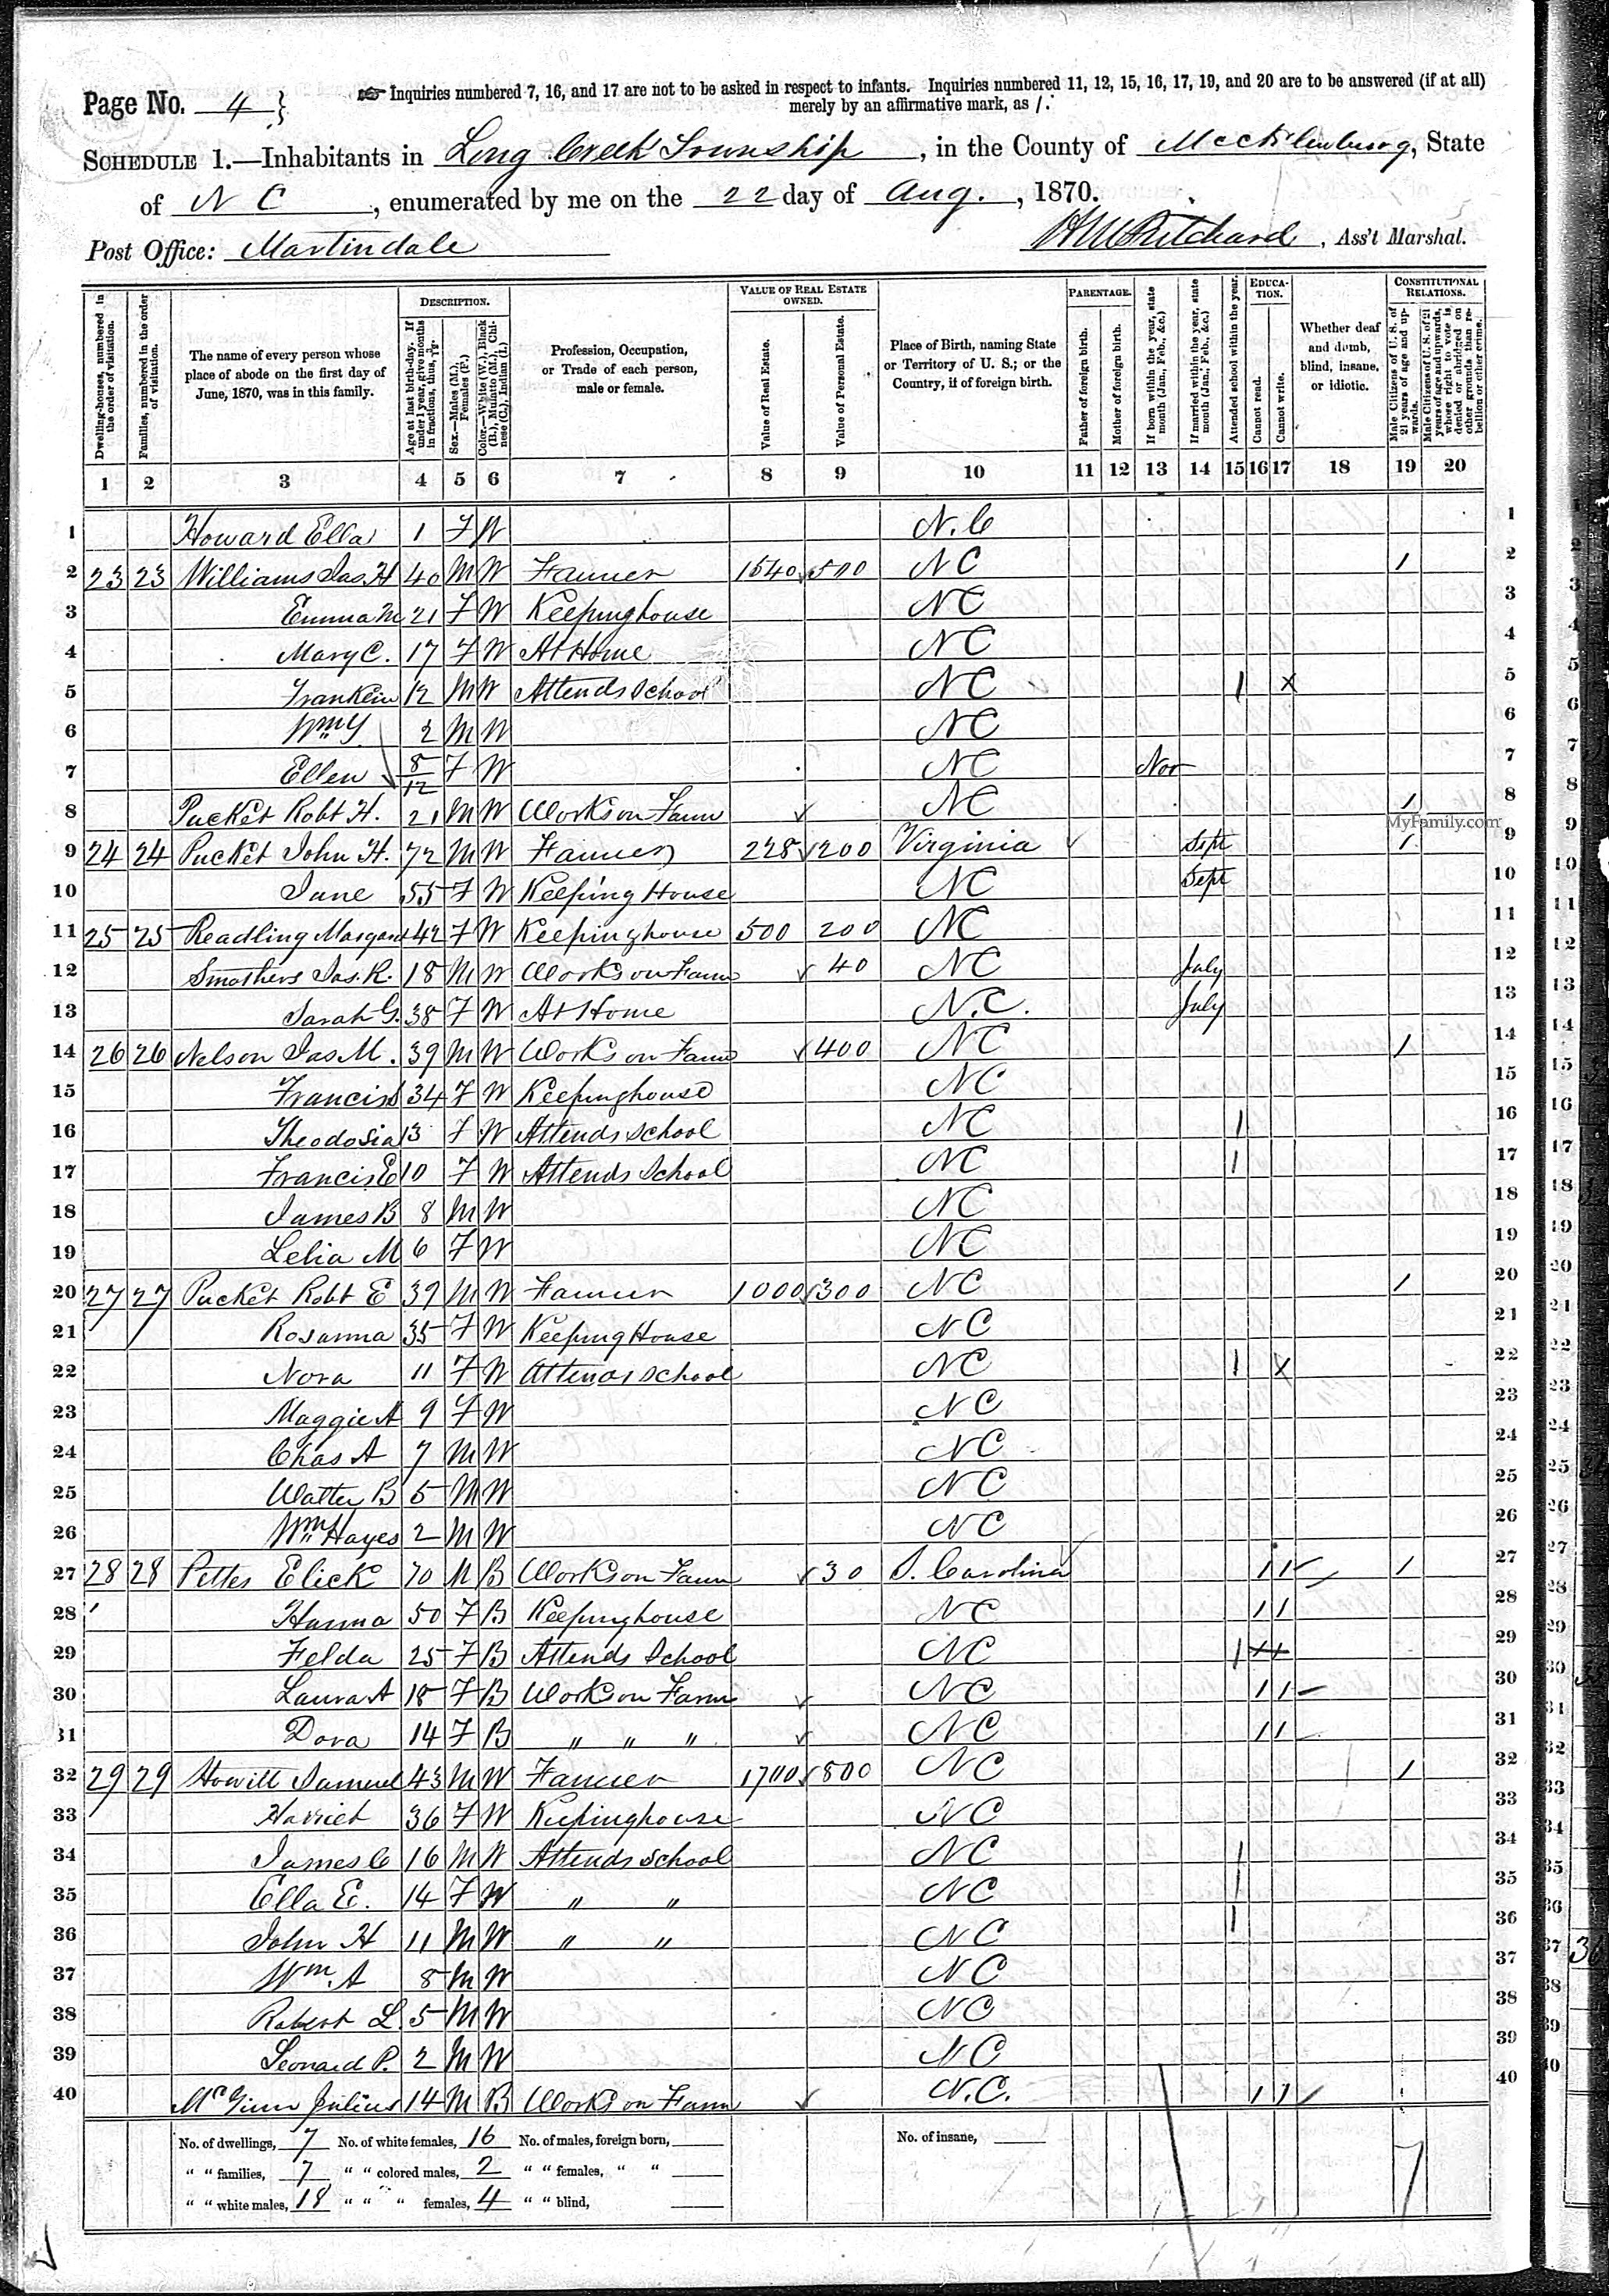 Page No. 4 } Inquiries numbered 7, 16, and 17 are not to be asked in respect to infants. Inquiries numbered 11, 12, 15, 16, 17, 19, and 20 are to be answered (if at all)
merely by an affirmative mark, as /.
SCHEDULE 1.—Inhabitants in Long Creek Township, in the County of Mecklenburg, State
of N C, enumerated by me on the 22 day of Aug., 1870.
Post Office: Martindale H M Pritchard, Ass't Marshal.
Dwelling-houses, numbered in the order of visitation.
Families, numbered in the order of visitation.
The name of every person whose place of abode on the first day of June, 1870, was in this family.
DESCRIPTION.
Age at last birth-day. If under 1 year, give months in fractions, thus, 3/12.
Sex.—Males (M.), Females (F.)
Color.—White (W.), Black (B.), Mulatto (M.), Chinese (C.), Indian (I.)
Profession, Occupation, or Trade of each person, male or female.
VALUE OF REAL ESTATE OWNED.
Value of Real Estate.
Value of Personal Estate.
Place of Birth, naming State or Territory of U. S.; or the Country, if of foreign birth.
PARENTAGE.
Father of foreign birth.
Mother of foreign birth.
If born within the year, state month (Jan., Feb., &c.)
If married within the year, state month (Jan., Feb., &c.)
Attended school within the year.
EDUCATION.
Cannot read.
Cannot write.
Whether deaf and dumb, blind, insane, or idiotic.
CONSTITUTIONAL RELATIONS.
Male Citizens of U. S. of 21 years of age and upwards.
Male Citizens of U. S. of 21 years of age and upwards, whose right to vote is denied or abridged on other grounds than rebellion or other crime.
1 2 3 4 5 6 7 8 9 10 11 12 13 14 15 16 17 18 19 20
1 Howard Ella 1 F W N.C 1
2 23 23 Williams Jas. H 40 M W Farmer 1540 500 NC 1 2
3 Emma M 21 F W Keepinghouse NC 3
4 Mary C. 17 F W At Home NC 4
5 Franklin 12 M W Attends School NC 1 X 5
6 Wm Y 2 M W NC 6
7 Ellen 8/12 F W NC Nov 7
8 Pucket Robt H. 21 M W Works on Farm NC 1 8
MyFamily.com
9 24 24 Pucket John H. 72 M W Farmer 228 200 Virginia Sept 1 9
10 Jane 55 F W Keeping House NC Sept 10
11 25 25 Readling Margaret 42 F W Keepinghouse 500 200 NC 11
12 Smothers Jas. R. 18 M W Works on Farm 40 NC July 12
13 Sarah G. 38 F W At Home N.C. July 13
14 26 26 Nelson Jas M. 39 M W Works on Farm 400 NC 1 14
15 Francis 34 F W Keepinghouse NC 15
16 Theodosia 13 F W Attends School NC 1 16
17 Francis E 10 F W Attends School NC 1 17
18 James B 8 M W NC 18
19 Lelia M 6 F W NC 19
20 27 27 Pucket Robt E 39 M W Farmer 1000 300 NC 1 20
21 Rosanna 35 F W Keeping House NC 21
22 Nora 11 F W Attends School NC 1 X 22
23 Maggie A 9 F W NC 23
24 Chas A 7 M W NC 24
25 Walter B 5 M W NC 25
26 Wm Hayes 2 M W NC 26
27 28 28 Pettes Elick 70 M B Works on Farm 30 S. Carolina 1 1 1 27
28 Hanna 50 F B Keepinghouse NC 1 1 28
29 Felda 25 F B Attends School NC 1 29
30 Laura A 18 F B Works on Farm NC 1 1 30
31 Dora 14 F B " " " NC 1 1 31
32 29 29 Howill Samuel 43 M W Farmer 1700 800 NC 1 32
33 Harriet 36 F W Keepinghouse NC 33
34 James C 16 M W Attends School NC 1 34
35 Ella E. 14 F W " " NC 1 35
36 John H 11 M W " " NC 1 36
37 Wm. A 8 M W NC 37
38 Robert L. 5 M W NC 38
39 Leonard P. 2 M W NC 39
40 McGinn Julius 14 M B Works on Farm N.C. 1 1 40
No. of dwellings, 7 No. of white females, 16 No. of males, foreign born, No. of insane,
" " families, 7 " " colored males, 2 " " females, " " 7
" " white males, 18 " " " females, 4 " " blind,